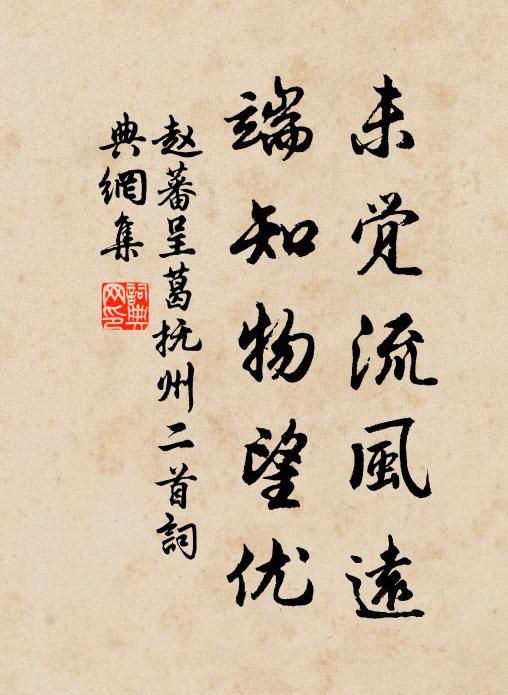 未觉流風遠
端知物望优
赵蕃呈葛抚州二首詞
典網集
詞典
网印